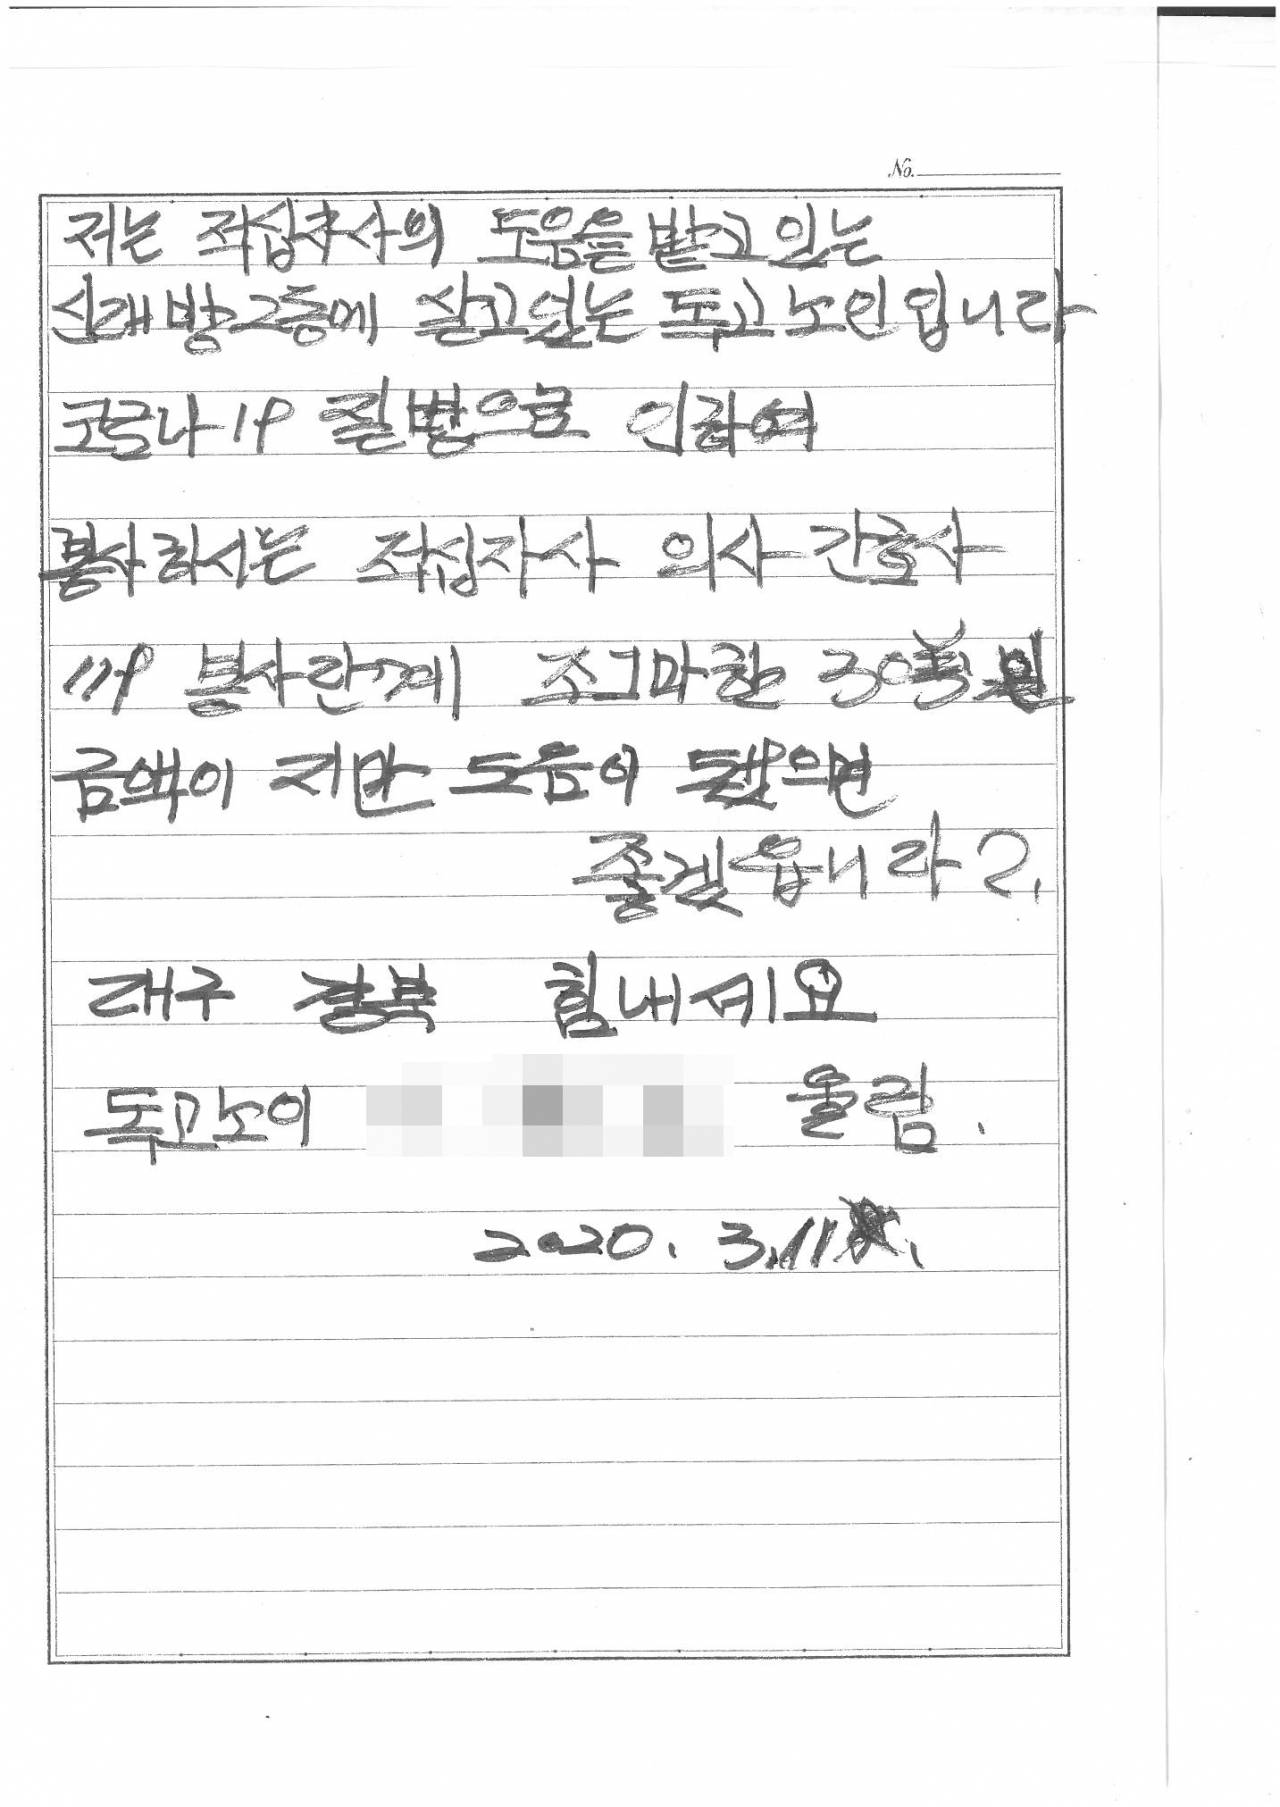 No.
저는 적십자사의 도움을 받고 있는
신래방2층에 살고있는 독고노인입니다
코로나19 질병으로 인하여
봉사하시는 적십자사 의사 간호사
119 봉사란게 조그마한 30萬원
금액이 지만 도음이 됐으면
좋겠읍니다?.
대구 경북 힘내세요
독고노이 올림.
2020. 3.11.